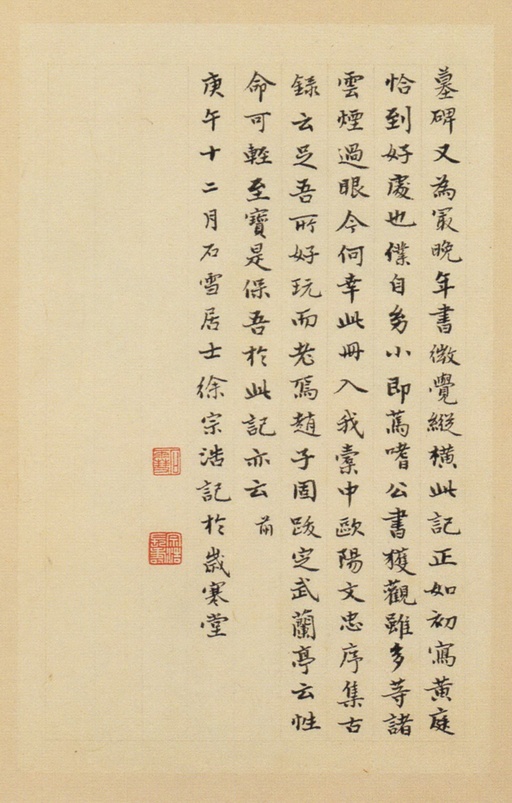 墓碑又為冣晚年書微覺縱橫此記正如初寫黃庭
恰到好處也僕自幼小即篤嗜公書獲觀雖多等諸
雲煙過眼今何幸此冊入我橐中歐陽文忠序集古
錄云足吾所好玩而老焉趙子固跋定武蘭亭云性
命可輕至寶是保吾於此記亦云 前
庚午十二月石雪居士徐宗浩記於歲寒堂
石雪
宗浩長壽